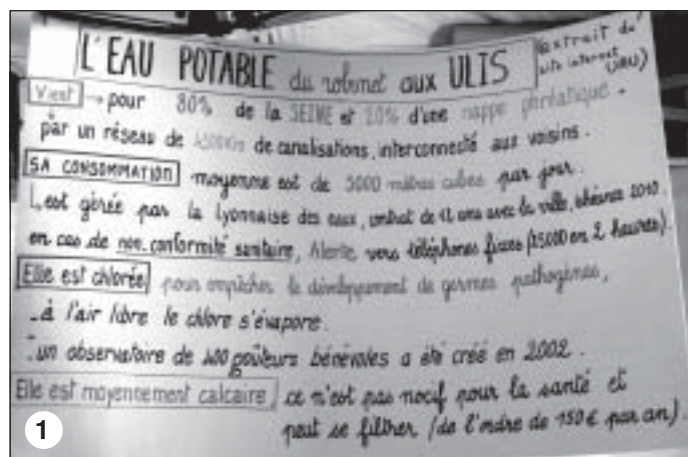 L'EAU POTABLE du robinet aux ULIS (extrait du site internet
Vient → pour 80% de la SEINE et 20% d'une nappe phréatique.
par un réseau de de canalisations, interconnecté aux voisins.
SA CONSOMMATION moyenne est de 5000 mètres cubes par jour.
L'est gérée par la Lyonnaise des eaux, contrat de 12 ans avec la ville, échéance 2010
en cas de non.conformité sanitaire, Alerte vers téléphones fixes (15000 en 2 heures).
Elle est chlorée pour empêcher le développement de germes pathogènes,
_à l'air libre le chlore s'évapore.
_un observatoire de goûteurs bénévoles a été créé en 2002.
Elle est moyennement calcaire, ce n'est pas nocif pour la santé et
peut se filtrer (de l'ordre de 150€ par an).
1